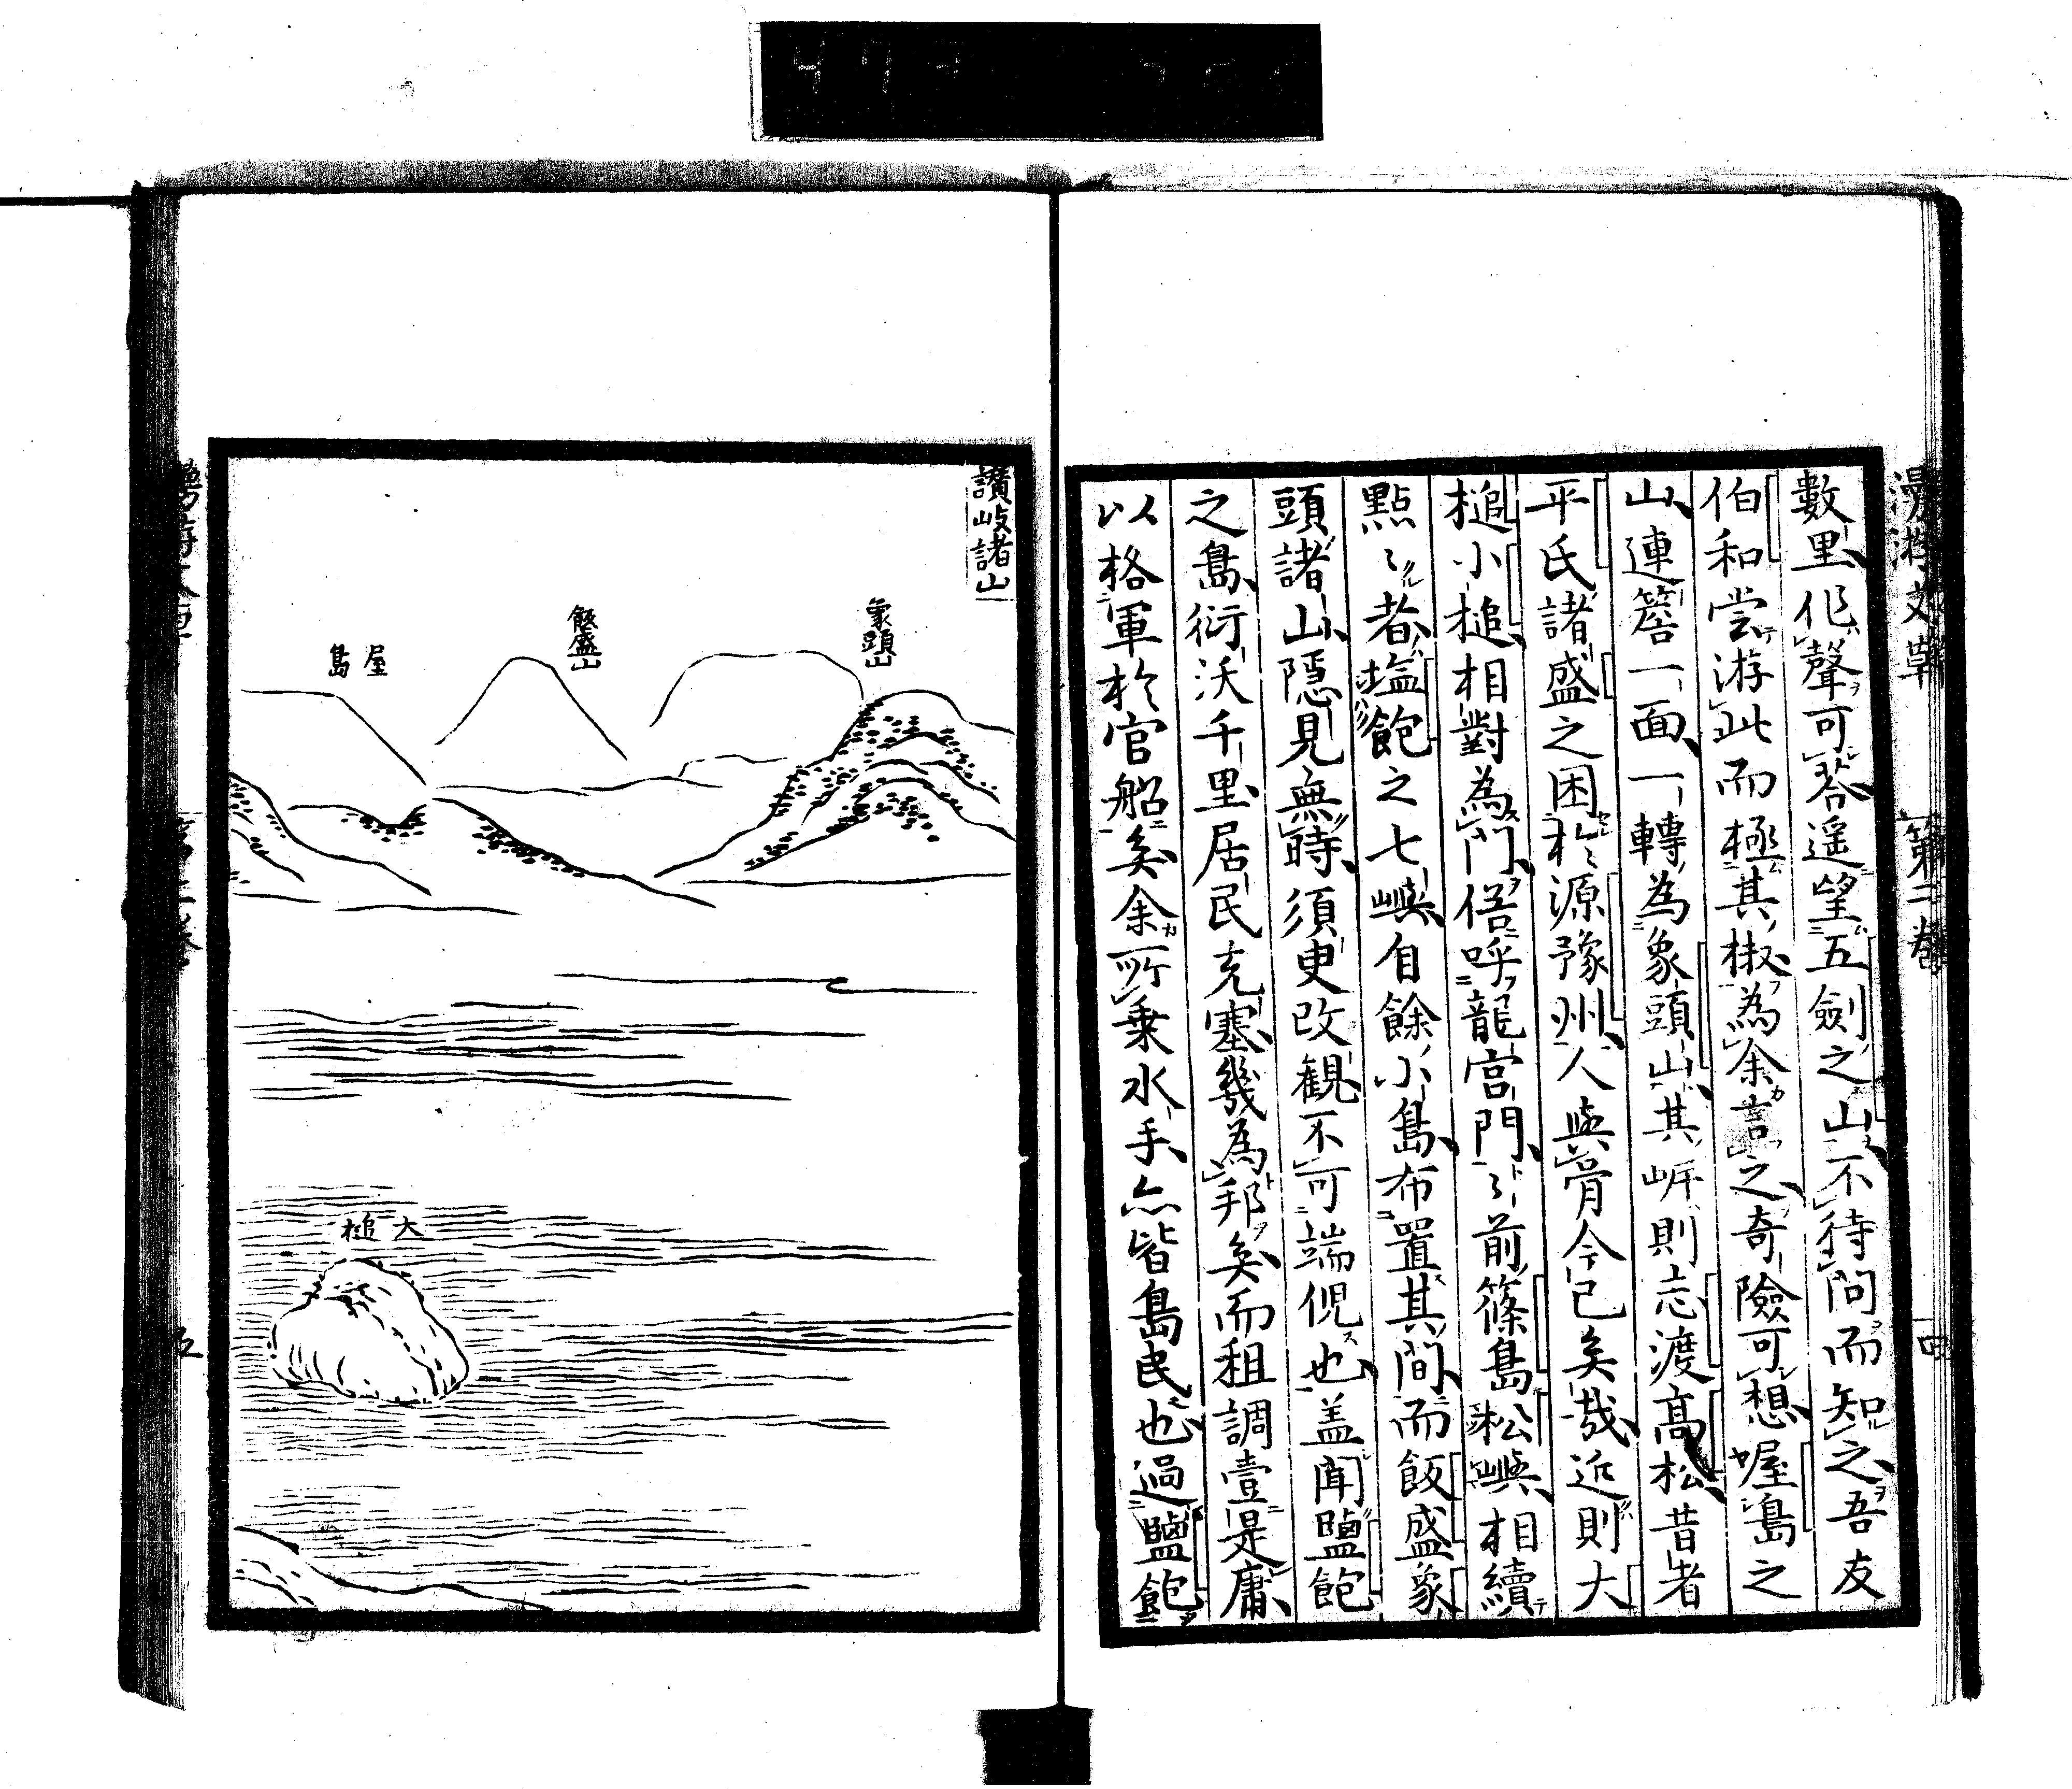 漫游文草 第二卷 四
數里作聲可答遥望五劍之山不待問而知之吾友
伯和嘗游此而極其椒為余言之奇險可想屋島之
山連簷一面一轉為象頭山其岍則志渡高松昔者
平氏諸盛之困於源豫州人與骨今已矣哉近則大
槌小槌相對為門俗呼龍宮門々前篠島松嶼相續
點々者塩飽之七嶼自餘小島布置其間而飯盛象
頭諸山隱見無時須更改觀不可端倪也盖聞鹽飽
之島衍沃千里居民充塞幾為邦矣而租調壹是庸
以格軍於官船矣余所乗水手亦皆島民也過鹽飽
讃岐諸山
象頭山
飯盛山
屋島
大槌
五